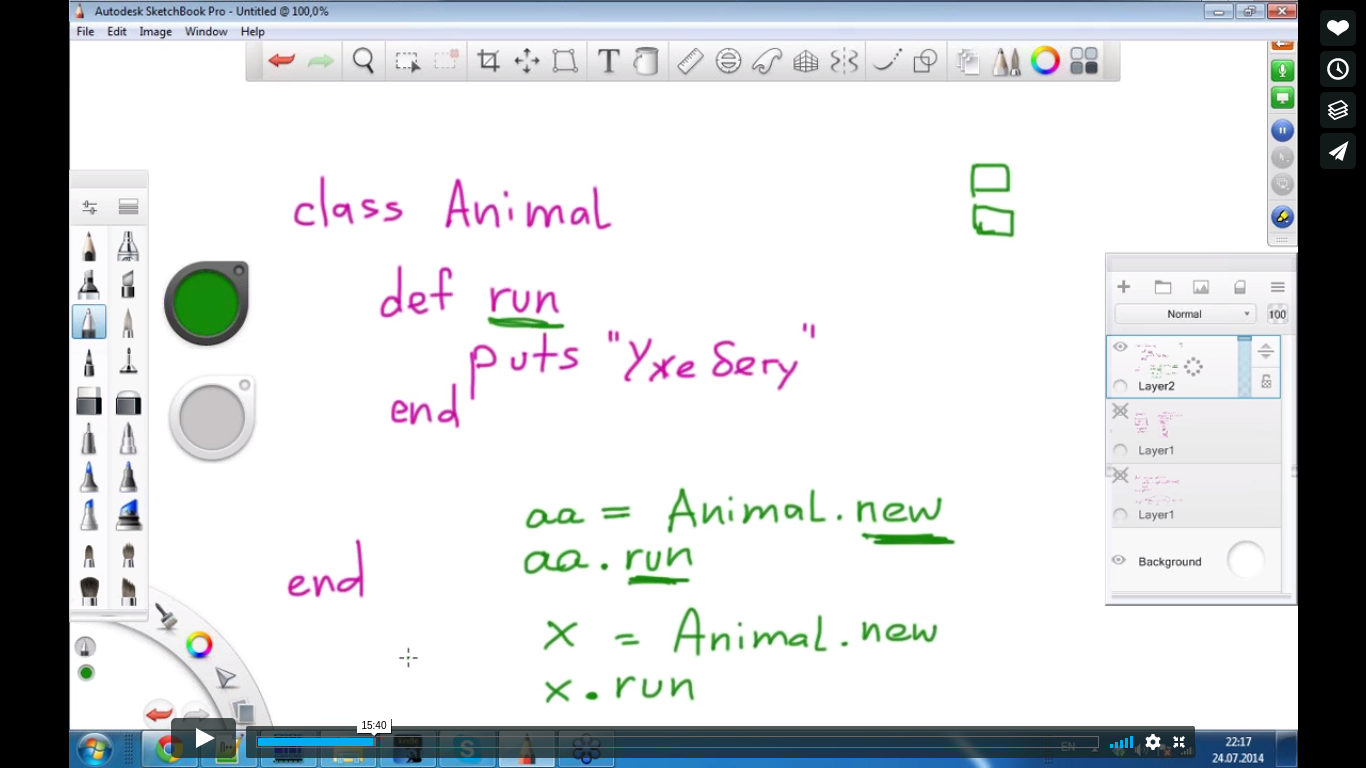 Autodesk SketchBook Pro - Untitled @ 100,0%
File Edit Image Window Help
class Animal
def run
puts "Уже бегу"
end
end
aa = Animal.new
aa.run
x = Animal.new
x.run
Normal 100
Layer2
Layer1
Layer1
Background
15:40
EN
22:17
24.07.2014